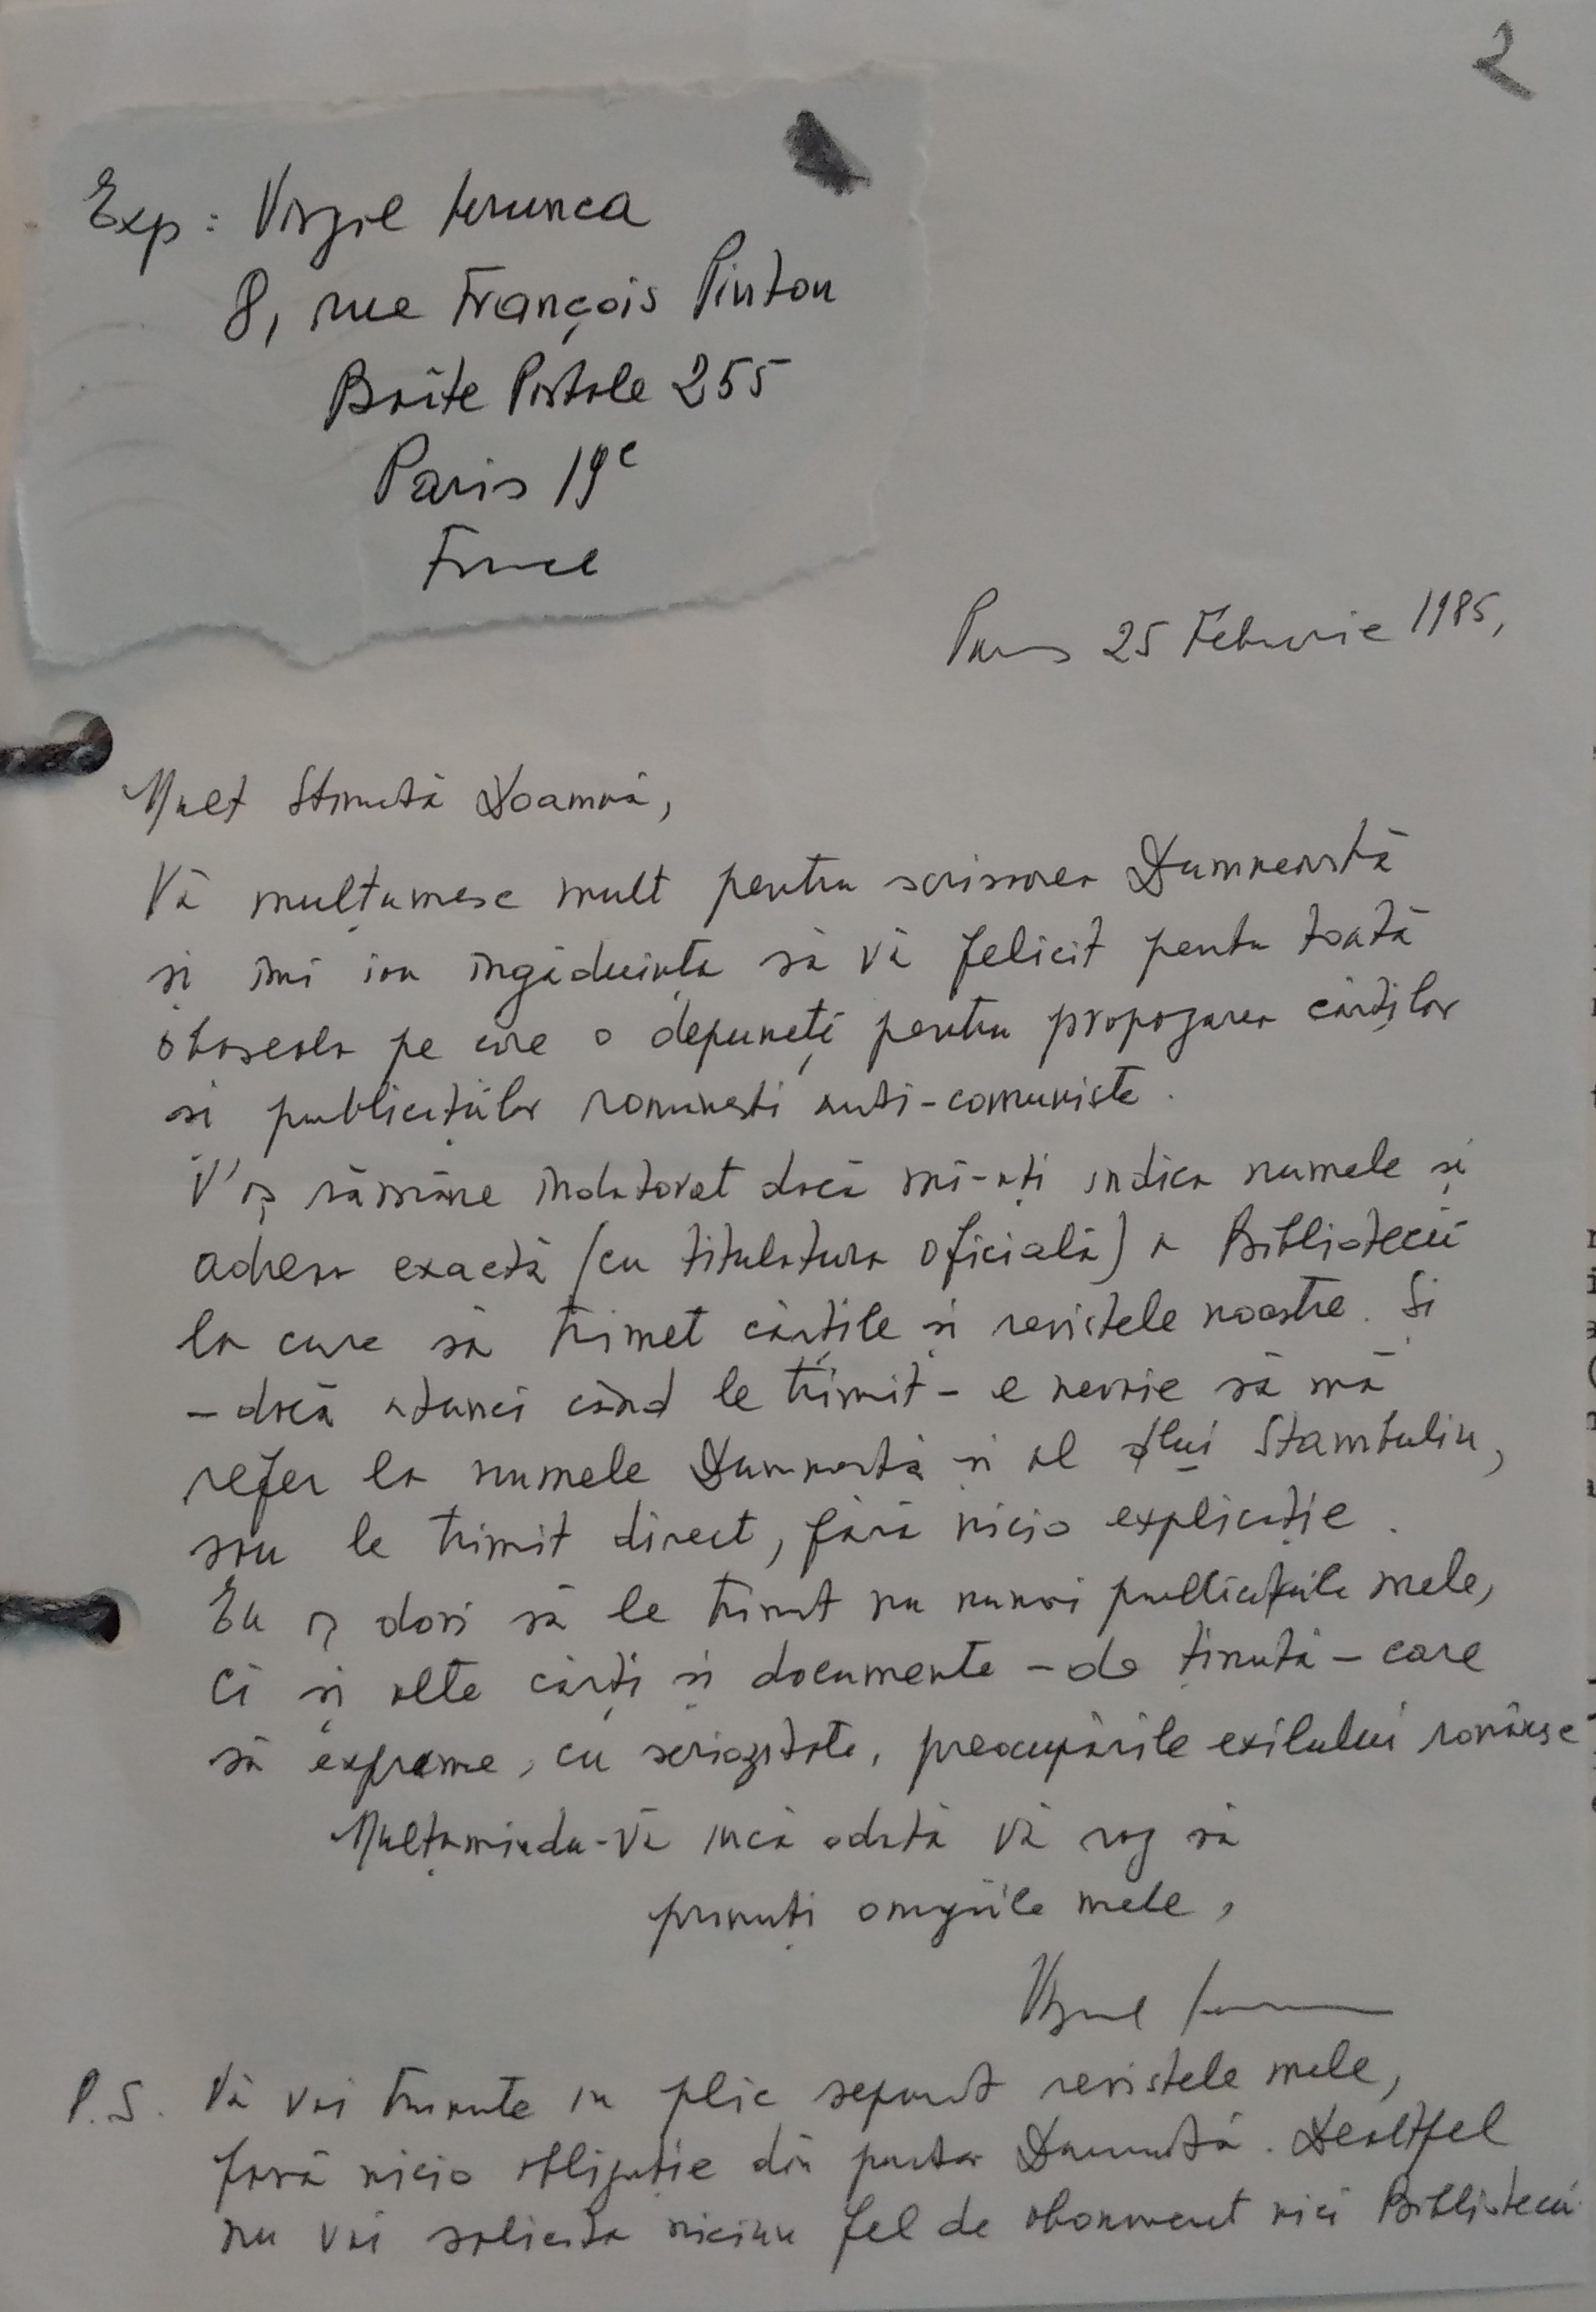 2
Exp: Virgil Ierunca
8, rue François Pinton
Boîte Postale 255
Paris 19e
France
Paris 25 Februarie 1985,
Mult Stimată Doamnă,
Vă mulțumesc mult pentru scrisoarea Dumneavoastră
și îmi iau îngăduința să vă felicit pentru toată
oboseala pe care o depuneți pentru propagarea cărților
și publicațiilor românești anti-comuniste.
V'aș rămâne îndatorat dacă mi-ați indica numele și
adresa exactă (cu titulatura oficială) a Bibliotecii
la care să trimet cărțile și revistele noastre. Și
- dacă atunci când le trimit - e nevoie să mă
refer la numele Dumneavoastră și al dlui Stambuliu,
sau le trimit direct, fără nicio explicație.
Eu aș dori să le trimit nu numai publicațiile mele,
ci și alte cărți și documente - de ținută - care
să exprime, cu seriozitate, preocupările exilului românesc
Mulțumindu-Vă încă odată Vă rog să
primiți omagiile mele,
Virgil Ierunca
P.S. Vă voi trimite în plic separat revistele mele,
fără nicio obligație din partea Dumneavoastră. Dealtfel
nu voi solicita niciun fel de abonament nici Bibliotecii.